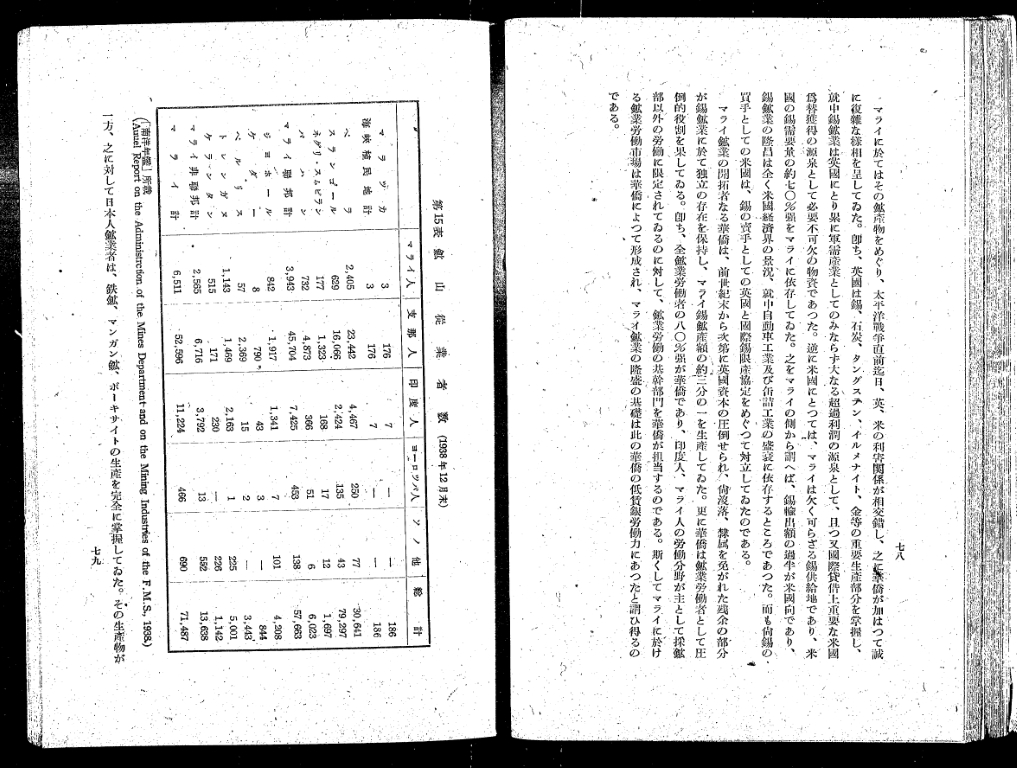 七八
マライに於てはその鑛產物をめぐり、太平洋戰爭直前迄日、英、米の利害關係が相交錯し、之に華僑が加はつて誠
に複雜な樣相を呈してゐた。卽ち、英國は錫、石炭、タングステン、イルメナイト、金等の重要生產部分を掌握し、
就中錫鑛業は英國にとり單に軍需產業としてのみならず大なる超過利潤の源泉として、且つ又國際貸借上重要な米國
爲替獲得の源泉として必要不可欠の物資であつた。逆に米國にとつては、マライは欠く可らざる錫供給地であり、米
國の錫需要量の約七〇%强をマライに依存してゐた。之をマライの側から謂へば、錫輸出額の過半が米國向であり、
錫鑛業の隆昌は全く米國經濟界の景況、就中自動車工業及び缶詰工業の盛衰に依存するところであつた。而も尙錫の
買手としての米國は、錫の賣手としての英國と國際錫限產協定をめぐつて對立してゐたのである。
マライ鑛業の開拓者なる華僑は、前世紀末から次第に英國資本の圧倒せられ、尙沒落、隸属を免がれた殘余の部分
が錫鑛業に於て獨立の存在を保持し、マライ錫鑛產額の約三分の一を生產してゐた。更に華僑は鑛業勞働者として圧
倒的役割を果してゐる。卽ち、全鑛業勞働者の八〇%强が華僑であり、印度人、マライ人の勞働分野が主として採鑛
部以外の勞働に限定されてゐるのに對して、鑛業勞働の基幹部門を華僑が担当するのである。斯くしてマライに於け
る鑛業勞働市場は華僑によつて形成され、マライ鑛業の隆盛の基礎は此の華僑の低賃銀勞働力にあつたと謂ひ得るの
である。
第15表 鑛山從業者數 (1938年12月末)
マライ人 支那人 印度人 ヨーロツパ人 ソノ他 総計
マラツカ 3 176 7 — — 186
海峽植民地計 3 176 7 — — 186
ペラ 2,405 23,442 4,467 250 77 30,641
スランゴール 629 16,066 2,424 135 43 79,297
ネグリ・スムビラン 177 1,323 168 17 12 1,697
パハン 732 4,873 366 51 6 6,023
マライ聯邦計 3,943 45,704 7,425 453 138 57,663
ジョホール 842 1,917 1,341 7 101 4,208
ケダー 8 790 43 3 — 844
ペルリス 57 2,369 15 2 — 3,443
トレンガヌ 1,143 1,469 2,163 1 225 5,001
ケランタン 515 171 230 — 226 1,142
マライ非聯邦計 2,565 6,716 3,792 13 552 13,638
マライ計 6,511 52,596 11,224 466 690 71,487
(「南洋年鑑」所載
(Annel Report on the Administration of the Mines Department and on the Mining Industries of the F.M.S., 1938.)
一方、之に對して日本人鑛業者は、鉄鑛、マンガン鑛、ボーキサイトの生產を完全に掌握してゐた。その生產物が
七九